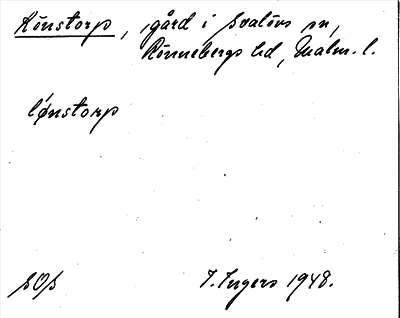 Könstorp, gård i Svalövs sn,
Rönnebergs hd, Malm. l.
lǿnstorp
SOS
I. Ingers 1948.